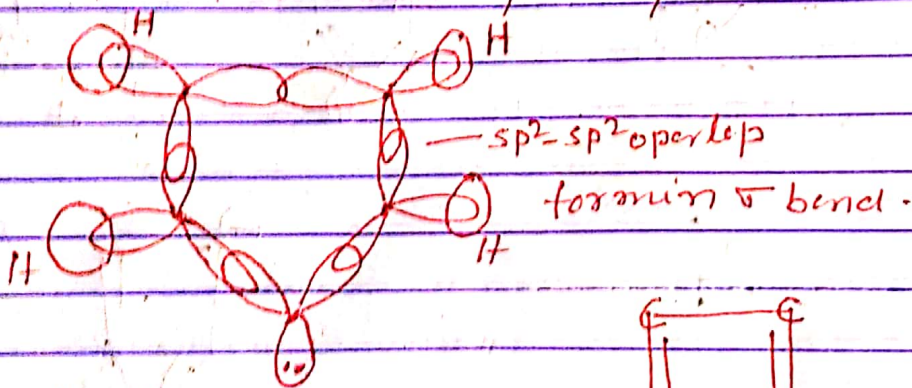 H
H
sp²-sp² overlep
formin σ bend.
H
H
C C